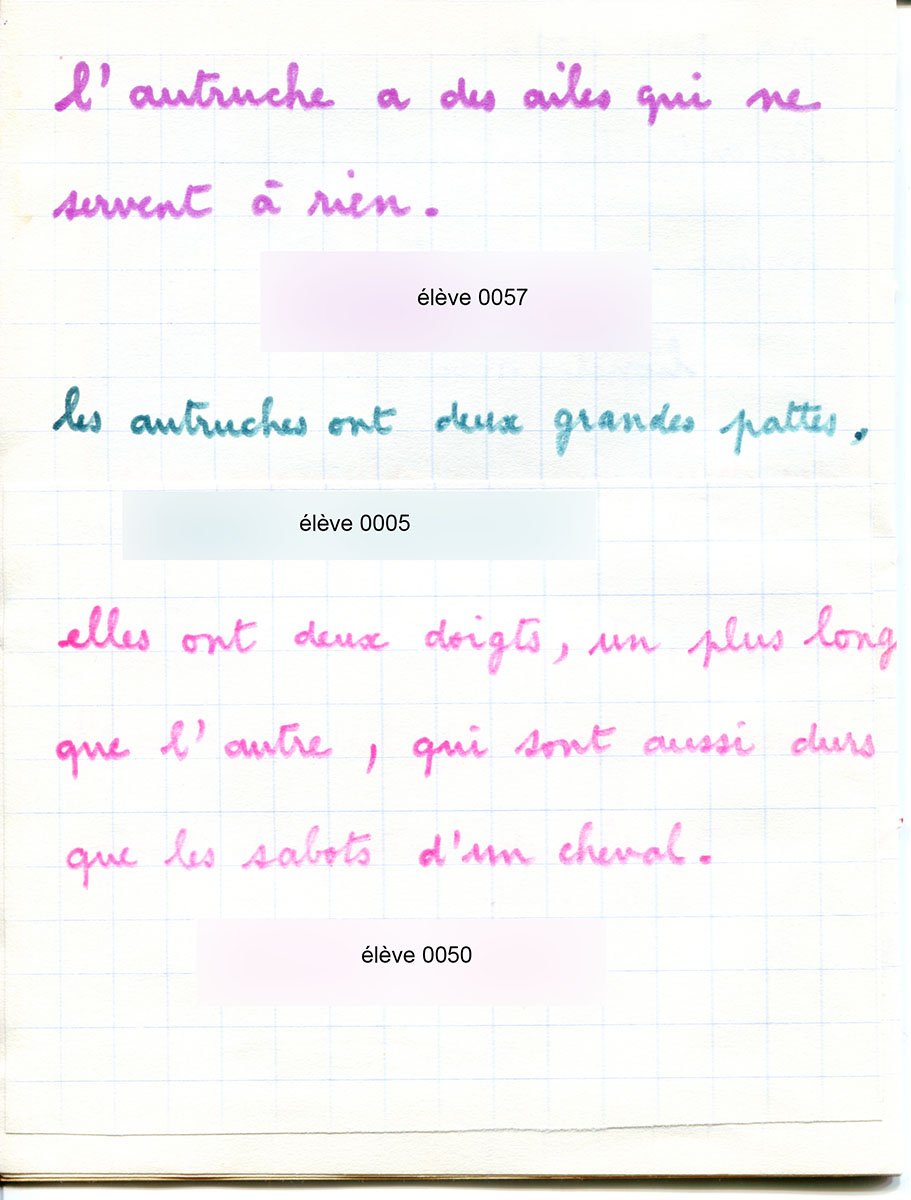 l'autruche a des ailes qui ne
servent à rien.
élève 0057
les autruches ont deux grandes pattes.
élève 0005
elles ont deux doigts, un plus long
que l'autre, qui sont aussi durs
que les sabots d'un cheval.
élève 0050